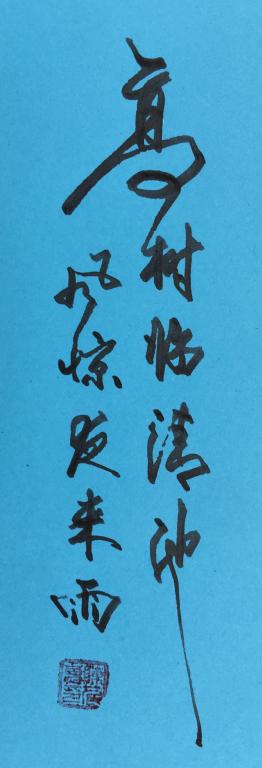 高树临清池
风惊夜来雨